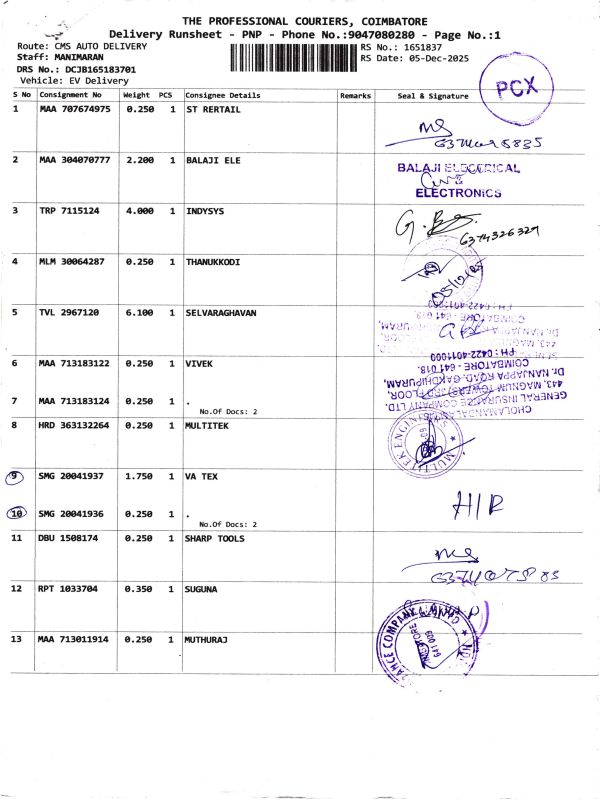 THE PROFESSIONAL COURIERS, COIMBATORE
Delivery Runsheet - PNP - Phone No.:9047080280 - Page No.:1
Route: CMS AUTO DELIVERY
RS No.: 1651837
Staff: MANIMARAN
RS Date: 05-Dec-2025
DRS No.: DCJB165183701
Vehicle: EV Delivery
PCX
S No Consignment No Weight PCS Consignee Details Remarks Seal & Signature
1 MAA 707674975 0.250 1 ST RERTAIL
2 MAA 304070777 2.200 1 BALAJI ELE
BALAJI ELECERICAL
ELECTRONICS
3 TRP 7115124 4.000 1 INDYSYS
6374326327
4 MLM 30064287 0.250 1 THANUKKODI
05/12/25
5 TVL 2967120 6.100 1 SELVARAGHAVAN
PH : 0422-4011000
COIMBATORE - 641 018.
Dr. NANJAPPA ROAD, GANDHIPURAM,
443, MAGNUM TOWERS, 3RD FLOOR,
GENERAL INSURANCE COMPANY LTD.
CHOLAMANDALAM
6 MAA 713183122 0.250 1 VIVEK
7 MAA 713183124 0.250 1 .
No.Of Docs: 2
8 HRD 363132264 0.250 1 MULTITEK
MULTITEK ENGINEERS
9 SMG 20041937 1.750 1 VA TEX
H/R
10 SMG 20041936 0.250 1 .
No.Of Docs: 2
11 DBU 1508174 0.250 1 SHARP TOOLS
12 RPT 1033704 0.350 1 SUGUNA
13 MAA 713011914 0.250 1 MUTHURAJ
641 009